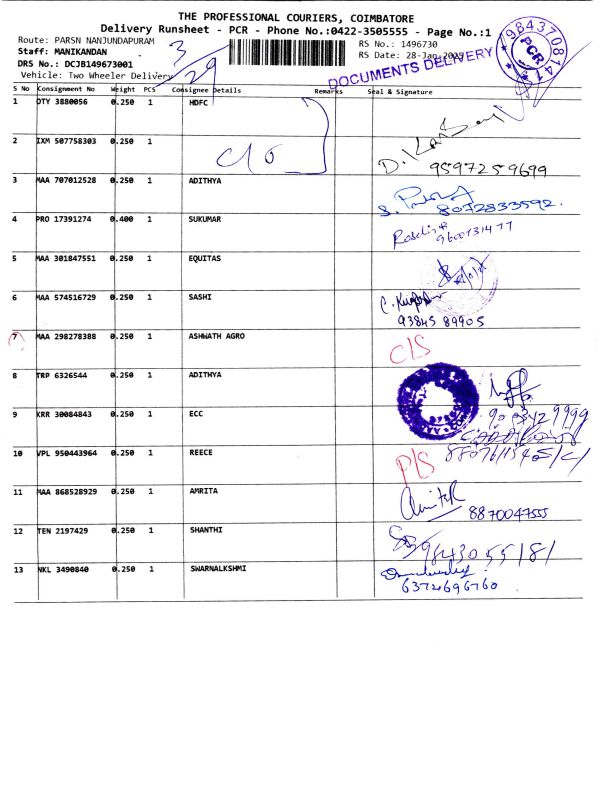 THE PROFESSIONAL COURIERS, COIMBATORE
Delivery Runsheet - PCR - Phone No.:0422-3505555 - Page No.:1
Route: PARSN NANJUNDAPURAM
Staff: MANIKANDAN
DRS No.: DCJB149673001
Vehicle: Two Wheeler Delivery
3
29
RS No.: 1496730
RS Date: 28-Jan-2029
DOCUMENTS DELIVERY
9843708141
PCR
S No Consignment No Weight PCS Consignee Details Remarks Seal & Signature
1 OTY 3880056 0.250 1 HDFC
2 IXM 507758303 0.250 1 C/o 9597259699
3 MAA 707012528 0.250 1 ADITHYA 8072833592.
4 PRO 17391274 0.400 1 SUKUMAR 9600731477
5 MAA 301847551 0.250 1 EQUITAS
6 MAA 574516729 0.250 1 SASHI 93845 89905
7 MAA 298278388 0.250 1 ASHWATH AGRO C/S
8 TRP 6326544 0.250 1 ADITHYA
9 KRR 30084843 0.250 1 ECC
10 VPL 950443964 0.250 1 REECE P/S
11 MAA 868528929 0.250 1 AMRITA 8870047555
12 TEN 2197429 0.250 1 SHANTHI 9843055181
13 NKL 3490840 0.250 1 SWARNALKSHMI 6374696760